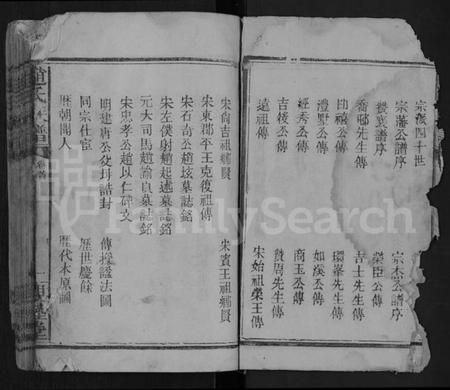 宗濂四十世
宗藩公譜序
宗杰公譜序
榮臣公傳
喬鄢先生傳
吉士先生傳
即禧公傳
環峯先生傳
澧墅公傳
如溪公傳
經秀公傳
商玉公傳
吉後公傳
贊周先生傳
遠祖傳
宋始祖榮王傳
宋尙吉祖補贊
宋賓王祖補贊
宋東潤平王克復祖傳
宋石奇公趙垓墓誌銘
宋左僕射趙起遠墓誌銘
元大司馬趙諭良墓誌銘
宋忠孝公趙以仁碑文
明建唐公父母誥封
傳授諡法圖
同宗仕宦
歷世慶餘
歷朝聞人
歷代本原圖
趙氏族譜
卷首
FamilySearch